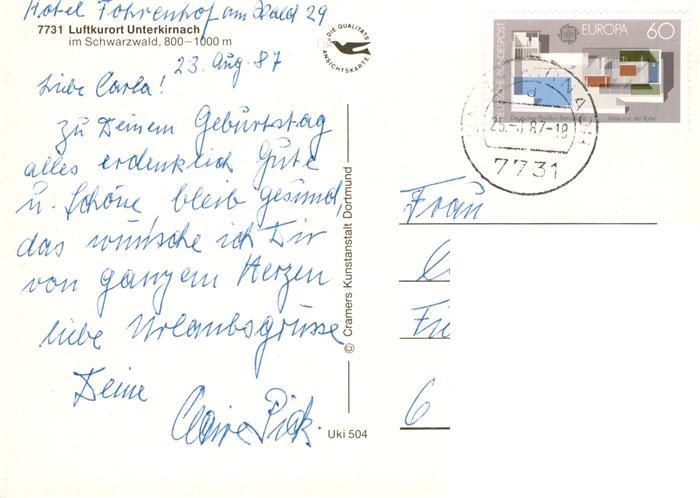 Hotel Föhrenhof am Wald 29
7731 Luftkurort Unterkirnach
im Schwarzwald, 800–1000 m
DIE QUALITÄTS
ANSICHTSKARTE
23. Aug. 87
Liebe Carla!
Zu Deinem Geburtstag
alles erdenklich Gute
u. Schöne bleib gesund,
das wünsche ich Dir
von ganzem Herzen
liebe Urlaubsgrüsse
Deine
Claire Pick.
© Cramers Kunstanstalt Dortmund
Uki 504
DEUTSCHE BUNDESPOST
EUROPA 60
Deutscher Pavillon Barcelona
Mies van der Rohe
25.-8.87-18
7731
Frau
6